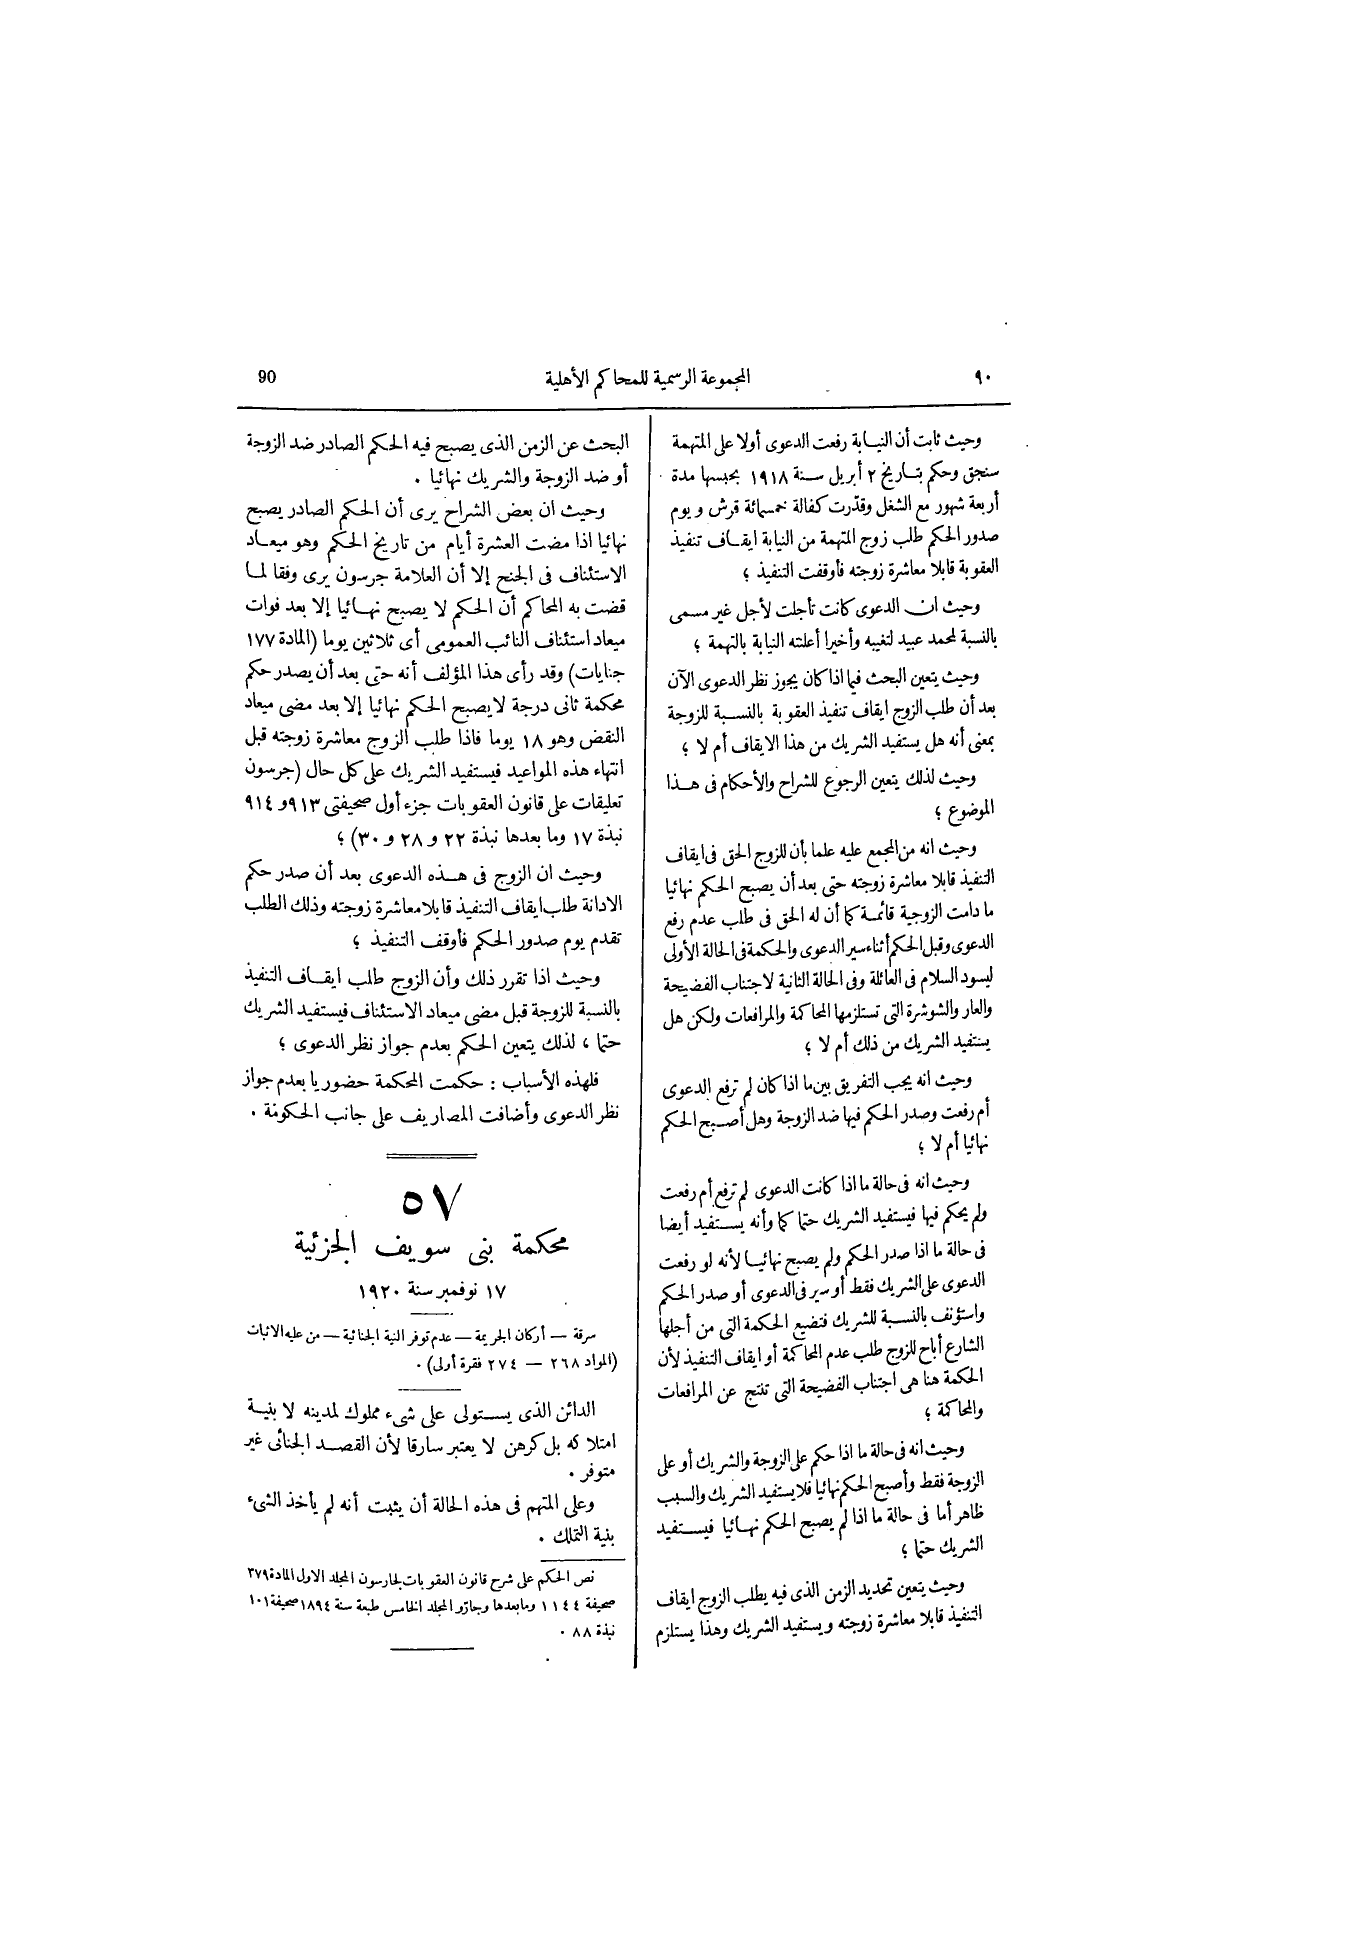 ٩٠
المجموعة الرسمية للمحاكم الأهلية
90
وحيث ثابت أن النيابة رفعت الدعوى أولا على المتهمة
سنجق وحكم بتاريخ ٢ أبريل سنة ١٩١٨ بحبسها مدة
أربعة شهور مع الشغل وقدّرت كفالة خمسمائة قرش ويوم
صدور الحكم طلب زوج المتهمة من النيابة ايقاف تنفيذ
العقوبة قابلا معاشرة زوجته فأوقفت التنفيذ ؛
وحيث ان الدعوى كانت تأجلت لأجل غير مسمى
بالنسبة لمحمد عبيد لتغيبه وأخيرا أعلنته النيابة بالتهمة ؛
وحيث يتعين البحث فيما اذا كان يجوز نظر الدعوى الآن
بعد أن طلب الزوج ايقاف تنفيذ العقوبة بالنسبة للزوجة
بمعنى أنه هل يستفيد الشريك من هذا الايقاف أم لا ؛
وحيث لذلك يتعين الرجوع للشراح والأحكام فى هذا
الموضوع ؛
وحيث انه من المجمع عليه علما بأن للزوج الحق فى ايقاف
التنفيذ قابلا معاشرة زوجته حتى بعد أن يصبح الحكم نهائيا
ما دامت الزوجية قائمة كما أن له الحق فى طلب عدم رفع
الدعوى وقبل الحكم أثناء سير الدعوى والحكمة فى الحالة الأولى
ليسود السلام فى العائلة وفى الحالة الثانية لاجتناب الفضيحة
والعار والشوشرة التى تستلزمها المحاكمة والمرافعات ولكن هل
يستفيد الشريك من ذلك أم لا ؛
وحيث انه يجب التفريق بين ما اذا كان لم ترفع الدعوى
أم رفعت وصدر الحكم فيها ضد الزوجة وهل أصبح الحكم
نهائيا أم لا ؛
وحيث انه فى حالة ما اذا كانت الدعوى لم ترفع أم رفعت
ولم يحكم فيها فيستفيد الشريك حتما كما وأنه يستفيد أيضا
فى حالة ما اذا صدر الحكم ولم يصبح نهائيا لأنه لو رفعت
الدعوى على الشريك فقط أو سير فى الدعوى أو صدر الحكم
واستؤنف بالنسبة للشريك فتضيع الحكمة التى من أجلها
الشارع أباح للزوج طلب عدم المحاكمة أو ايقاف التنفيذ لأن
الحكمة هنا هى اجتناب الفضيحة التى تنتج عن المرافعات
والمحاكمة ؛
وحيث انه فى حالة ما اذا حكم على الزوجة والشريك أو على
الزوجة فقط وأصبح الحكم نهائيا فلا يستفيد الشريك والسبب
ظاهر أما فى حالة ما اذا لم يصبح الحكم نهائيا فيستفيد
الشريك حتما ؛
وحيث يتعين تحديد الزمن الذى فيه يطلب الزوج ايقاف
التنفيذ قابلا معاشرة زوجته ويستفيد الشريك وهذا يستلزم
البحث عن الزمن الذى يصبح فيه الحكم الصادر ضد الزوجة
أو ضد الزوجة والشريك نهائيا .
وحيث ان بعض الشراح يرى أن الحكم الصادر يصبح
نهائيا اذا مضت العشرة أيام من تاريخ الحكم وهو ميعاد
الاستئناف فى الجنح إلا أن العلامة جرسون يرى وفقا لما
قضت به المحاكم أن الحكم لا يصبح نهائيا إلا بعد فوات
ميعاد استئناف النائب العمومى أى ثلاثين يوما (المادة ١٧٧
جنايات) وقد رأى هذا المؤلف أنه حتى بعد أن يصدر حكم
محكمة ثانى درجة لا يصبح الحكم نهائيا إلا بعد مضى ميعاد
النقض وهو ١٨ يوما فاذا طلب الزوج معاشرة زوجته قبل
انتهاء هذه المواعيد فيستفيد الشريك على كل حال (جرسون
تعليقات على قانون العقوبات جزء أول صحيفتى ٩١٣ و ٩١٤
نبذة ١٧ وما بعدها نبذة ٢٢ و ٢٨ و ٣٠) ؛
وحيث ان الزوج فى هذه الدعوى بعد أن صدر حكم
الادانة طلب ايقاف التنفيذ قابلا معاشرة زوجته وذلك الطلب
تقدم يوم صدور الحكم فأوقف التنفيذ ؛
وحيث اذا تقرر ذلك وأن الزوج طلب ايقاف التنفيذ
بالنسبة للزوجة قبل مضى ميعاد الاستئناف فيستفيد الشريك
حتما ، لذلك يتعين الحكم بعدم جواز نظر الدعوى ؛
فلهذه الأسباب : حكمت المحكمة حضوريا بعدم جواز
نظر الدعوى وأضافت المصاريف على جانب الحكومة .
٥٧
محكمة بنى سويف الجزئية
١٧ نوفمبر سنة ١٩٢٠
سرقة — أركان الجريمة — عدم توفر النية الجنائية — من عليه الاثبات
(المواد ٢٦٨ — ٢٧٤ فقرة أولى) .
الدائن الذى يستولى على شىء مملوك لمدينه لا بنية
امتلاكه بل كرهن لا يعتبر سارقا لأن القصد الجنائى غير
متوفر .
وعلى المتهم فى هذه الحالة أن يثبت أنه لم يأخذ الشىء
بنية التملك .
نص الحكم على شرح قانون العقوبات لجارسون المجلد الاول المادة ٣٧٩
صحيفة ١١٤٤ وما بعدها وجارّو المجلد الخامس طبعة سنة ١٨٩٤ صحيفة ١٠١
نبذة ٨٨ .